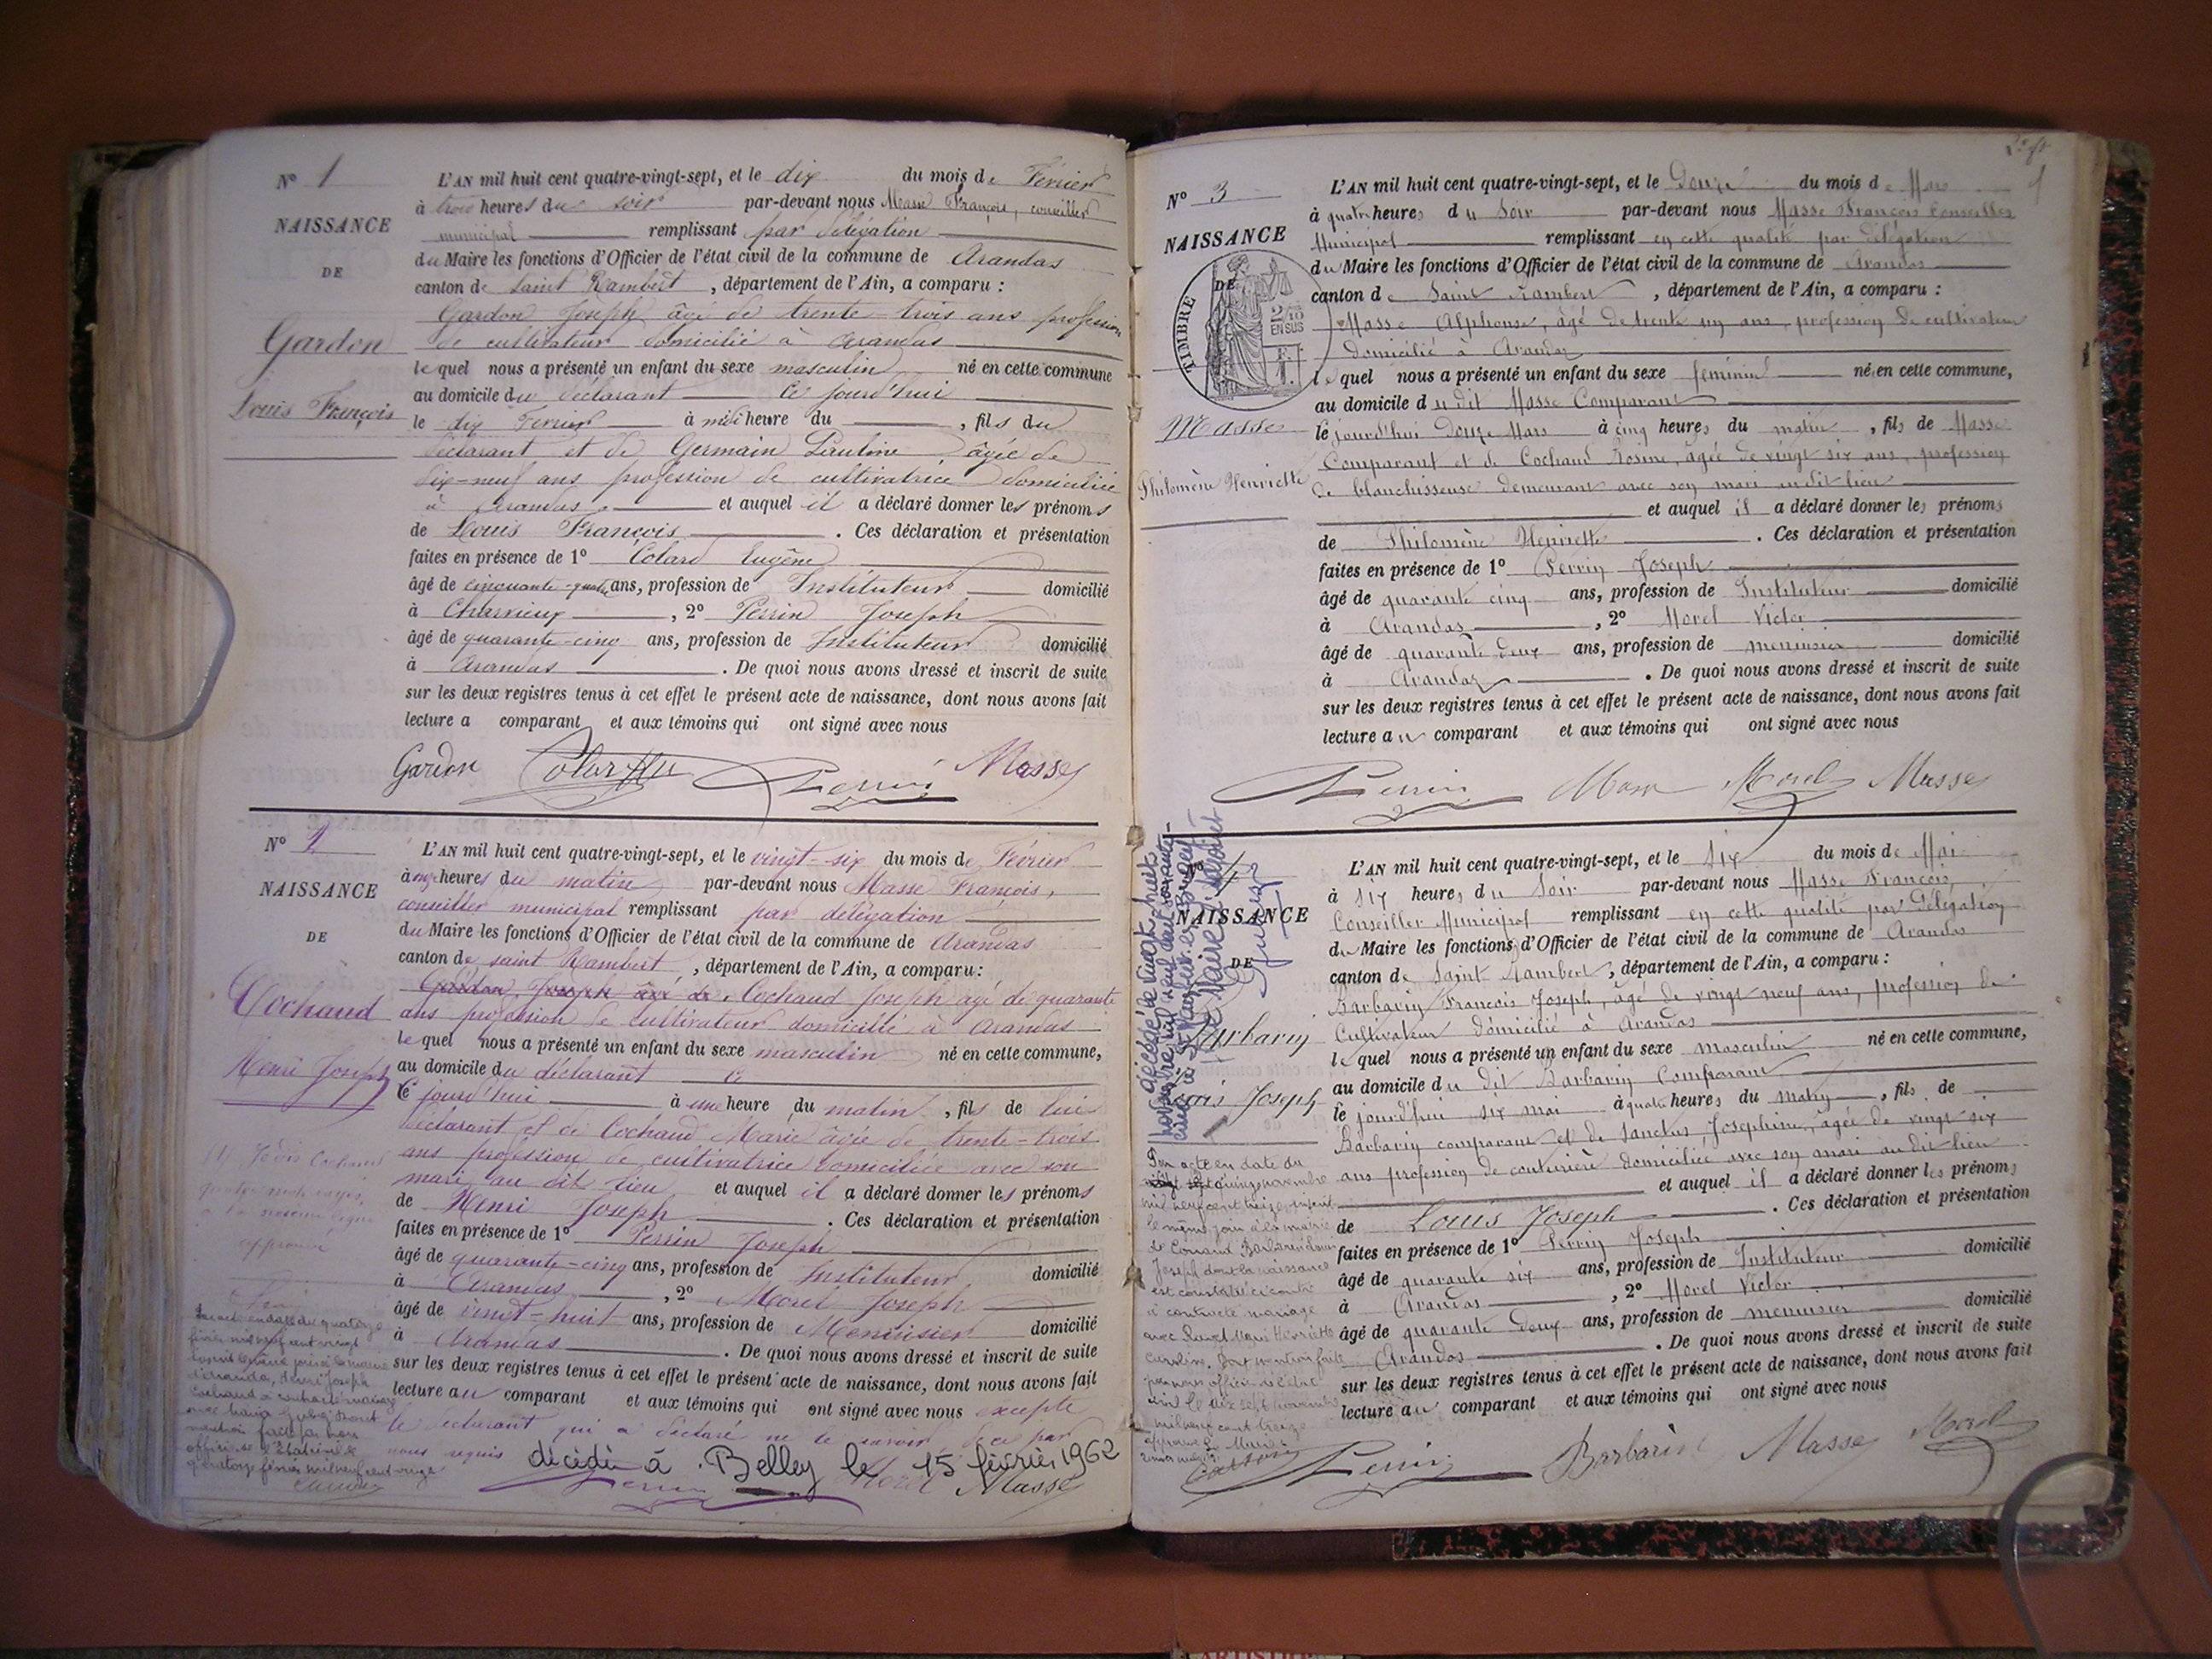 N° 1
NAISSANCE
DE
Gardon
Louis François
L'AN mil huit cent quatre-vingt-sept, et le dix du mois de Février
à trois heures du soir par-devant nous Masse François, conseiller
municipal remplissant par délégation
du Maire les fonctions d'Officier de l'état civil de la commune de Arandas
canton de Saint Rambert, département de l'Ain, a comparu :
Gardon Joseph âgé de trente-trois ans profession
de cultivateur domicilié à Arandas
lequel nous a présenté un enfant du sexe masculin né en cette commune
au domicile du déclarant ce jourd'hui
le dix Février à midi heure du , fils du
déclarant et de Germain Pauline âgée de
dix-neuf ans profession de cultivatrice domiciliée
à Arandas et auquel il a déclaré donner les prénoms
de Louis François . Ces déclaration et présentation
faites en présence de 1° Colard Eugène
âgé de cinquante-quatre ans, profession de Instituteur domicilié
à , 2° Perrin Joseph
âgé de quarante-cinq ans, profession de Instituteur domicilié
à Arandas . De quoi nous avons dressé et inscrit de suite
sur les deux registres tenus à cet effet le présent acte de naissance, dont nous avons fait
lecture a comparant et aux témoins qui ont signé avec nous
Gardon Colard Perrin Masse
N° 2
NAISSANCE
DE
Cochaud
Henri Joseph
L'AN mil huit cent quatre-vingt-sept, et le vingt-six du mois de Février
à onze heures du matin par-devant nous Masse François,
conseiller municipal remplissant par délégation
du Maire les fonctions d'Officier de l'état civil de la commune de Arandas
canton de saint Rambert, département de l'Ain, a comparu :
Gardon Joseph âgé de Cochaud Joseph agé de quarante
ans profession de cultivateur domicilié à Arandas
lequel nous a présenté un enfant du sexe masculin né en cette commune,
au domicile du déclarant
ce jourd'hui à une heure du matin, fils de lui
déclarant et de Cochaud Marie âgée de trente-trois
ans profession de cultivatrice domiciliée avec son
mari au dit lieu et auquel il a déclaré donner les prénoms
de Henri Joseph . Ces déclaration et présentation
faites en présence de 1° Perrin Joseph
âgé de quarante-cinq ans, profession de Instituteur domicilié
à Arandas , 2° Morel Joseph
âgé de vingt-huit ans, profession de Menuisier domicilié
à Arandas . De quoi nous avons dressé et inscrit de suite
sur les deux registres tenus à cet effet le présent acte de naissance, dont nous avons fait
lecture au comparant et aux témoins qui ont signé avec nous excepté
le déclarant qui a déclaré ne le savoir de ce par
nous requis
décédé à Belley le 15 février 1962
Perrin Morel Masse
N° 3
NAISSANCE
DE
TIMBRE
2/10 EN SUS
Masse
Philomène Henriette
L'AN mil huit cent quatre-vingt-sept, et le Douze du mois de Mars
à quatre heures du Soir par-devant nous Masse François Conseiller
Municipal remplissant en cette qualité par délégation
du Maire les fonctions d'Officier de l'état civil de la commune de Arandas
canton de Saint Rambert, département de l'Ain, a comparu :
Masse Alphonse, âgé de trente un ans, profession de cultivateur
domicilié à Arandas
lequel nous a présenté un enfant du sexe féminin né en cette commune,
au domicile du dit Masse Comparant
le jourd'hui Douze Mars à cinq heures du matin, fils de Masse
Comparant et de Cochaud Rosine, âgée de vingt six ans, profession
de blanchisseuse demeurant avec son mari au dit lieu
et auquel il a déclaré donner les prénoms
de Philomène Henriette . Ces déclaration et présentation
faites en présence de 1° Perrin Joseph
âgé de quarante cinq ans, profession de Instituteur domicilié
à Arandas , 2° Morel Victor
âgé de quarante deux ans, profession de menuisier domicilié
à Arandas . De quoi nous avons dressé et inscrit de suite
sur les deux registres tenus à cet effet le présent acte de naissance, dont nous avons fait
lecture au comparant et aux témoins qui ont signé avec nous
Perrin Masse Morel Masse
N° 4
NAISSANCE
DE
Barbarin
Louis Joseph
L'AN mil huit cent quatre-vingt-sept, et le six du mois de Mai
à six heures du Soir par-devant nous Masse François
Conseiller Municipal remplissant en cette qualité par Délégation
du Maire les fonctions d'Officier de l'état civil de la commune de Arandas
canton de Saint Rambert, département de l'Ain, a comparu :
Barbarin François Joseph, âgé de vingt neuf ans, profession de
Cultivateur domicilié à Arandas
lequel nous a présenté un enfant du sexe masculin né en cette commune,
au domicile du dit Barbarin Comparant
le jourd'hui six mai à quatre heures du matin, fils de
Barbarin comparant et de Sanctus Josephine, âgée de vingt six
ans profession de couturière domiciliée avec son mari au dit lieu
et auquel il a déclaré donner les prénoms
de Louis Joseph . Ces déclaration et présentation
faites en présence de 1° Perrin Joseph
âgé de quarante six ans, profession de Instituteur domicilié
à Arandas , 2° Morel Victor
âgé de quarante deux ans, profession de menuisier domicilié
à Arandas . De quoi nous avons dressé et inscrit de suite
sur les deux registres tenus à cet effet le présent acte de naissance, dont nous avons fait
lecture au comparant et aux témoins qui ont signé avec nous
Perrin Barbarin Masse Morel